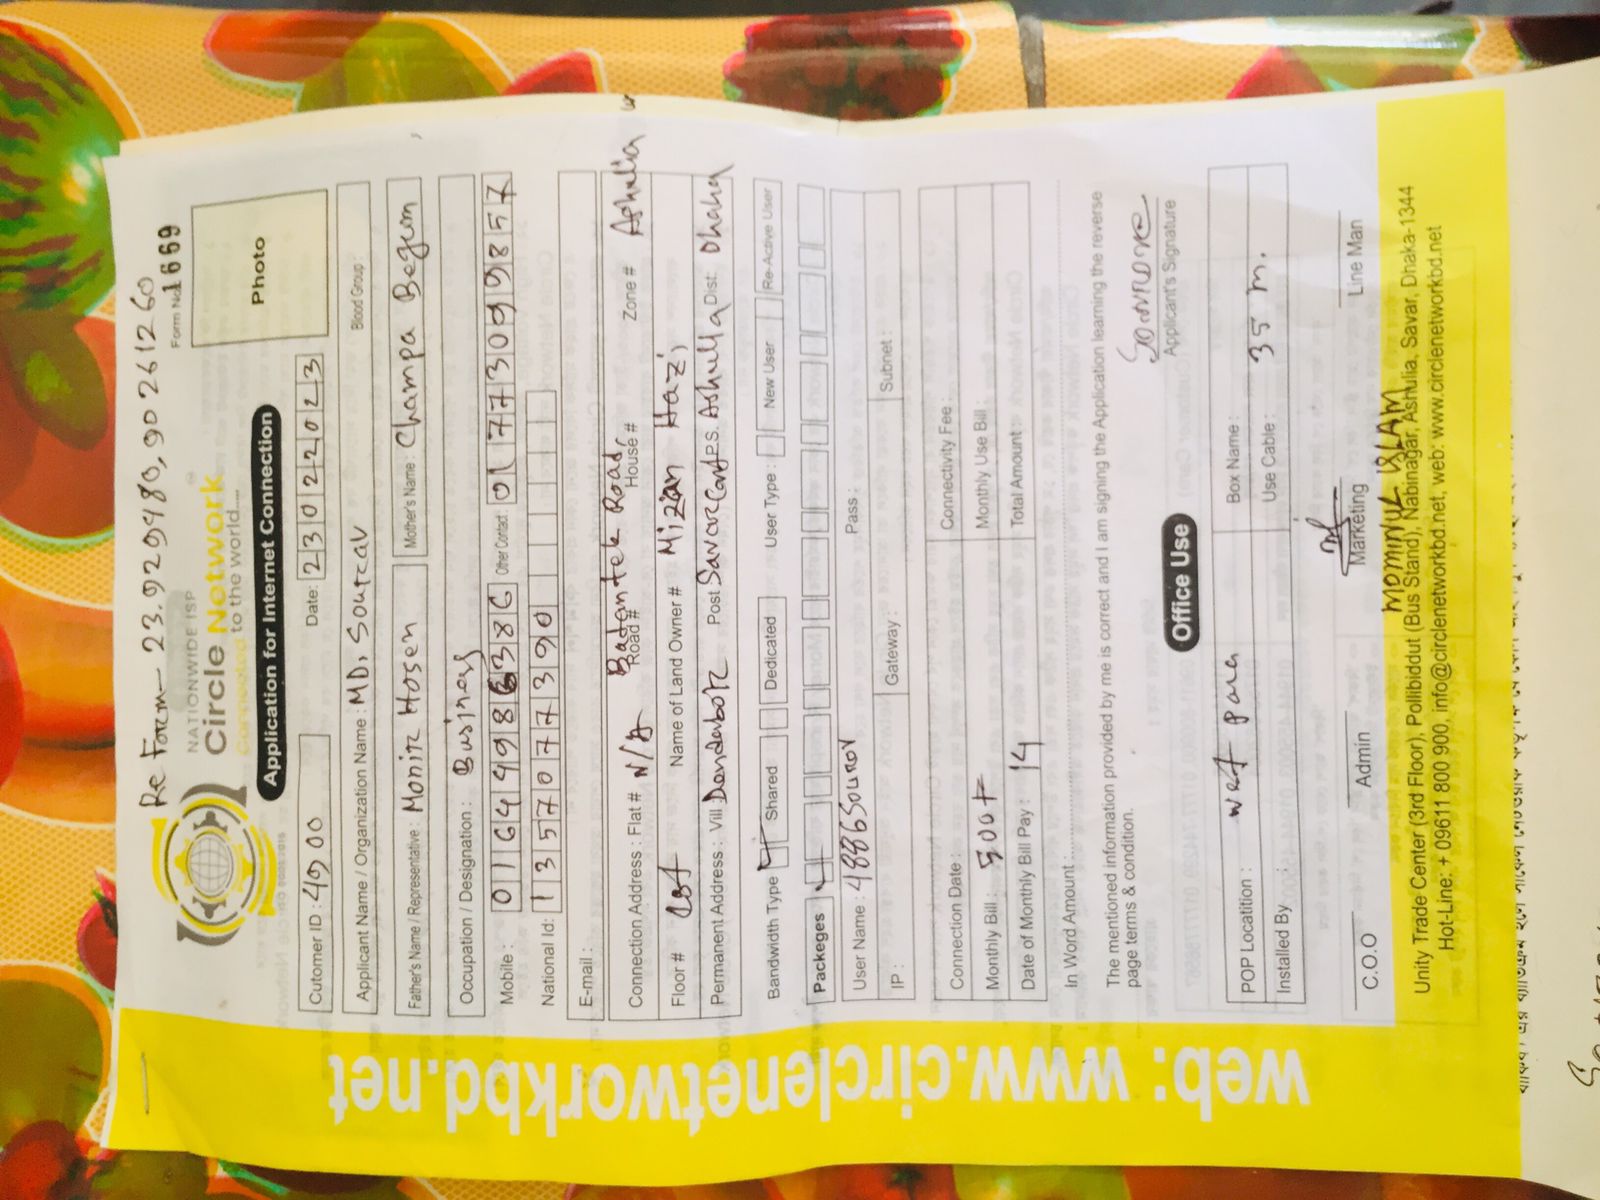 Re Form- 23.929480, 90.261260
Form No. 1669
NATIONWIDE ISP
Circle Network
Connected to the world....
Application for Internet Connection
Photo
Cutomer ID : 4900
Date: 23022023
Applicant Name / Organization Name : MD. Sourav
Blood Group :
Father's Name / Representative : Monir Hosen
Mother's Name : Champa Begum
Occupation / Designation : Business
Mobile : 01649866386 Other Contact : 01773099857
National Id: 1357077390
E-mail :
Connection Address : Flat # N/A Road # Badantek Road House # Zone # Ashulia
Floor # 1st Name of Land Owner # Mizan Hazi
Permanent Address : Vill Dendabor Post Savar Cant P.S. Ashulia Dist. Dhaka
Bandwidth Type Shared Dedicated User Type : New User Re-Active User
Packeges
User Name : 4886Sourov Pass :
IP : Gateway : Subnet :
Connection Date : Connectivity Fee :
Monthly Bill : 500 Monthly Use Bill :
Date of Monthly Bill Pay : 14 Total Amount :
In Word Amount :
The mentioned information provided by me is correct and I am signing the Application learning the reverse
page terms & condition.
Applicant's Signature
Office Use
POP Locatition : west para Box Name :
Installed By Use Cable : 35 m.
C.O.O Admin Marketing Line Man
MOMINUL ISLAM
Unity Trade Center (3rd Floor), Pollibiddut (Bus Stand), Nabinagar, Ashulia, Savar, Dhaka-1344
Hot-Line: + 09611 800 900, info@circlenetworkbd.net, web: www.circlenetworkbd.net
web: www.circlenetworkbd.net